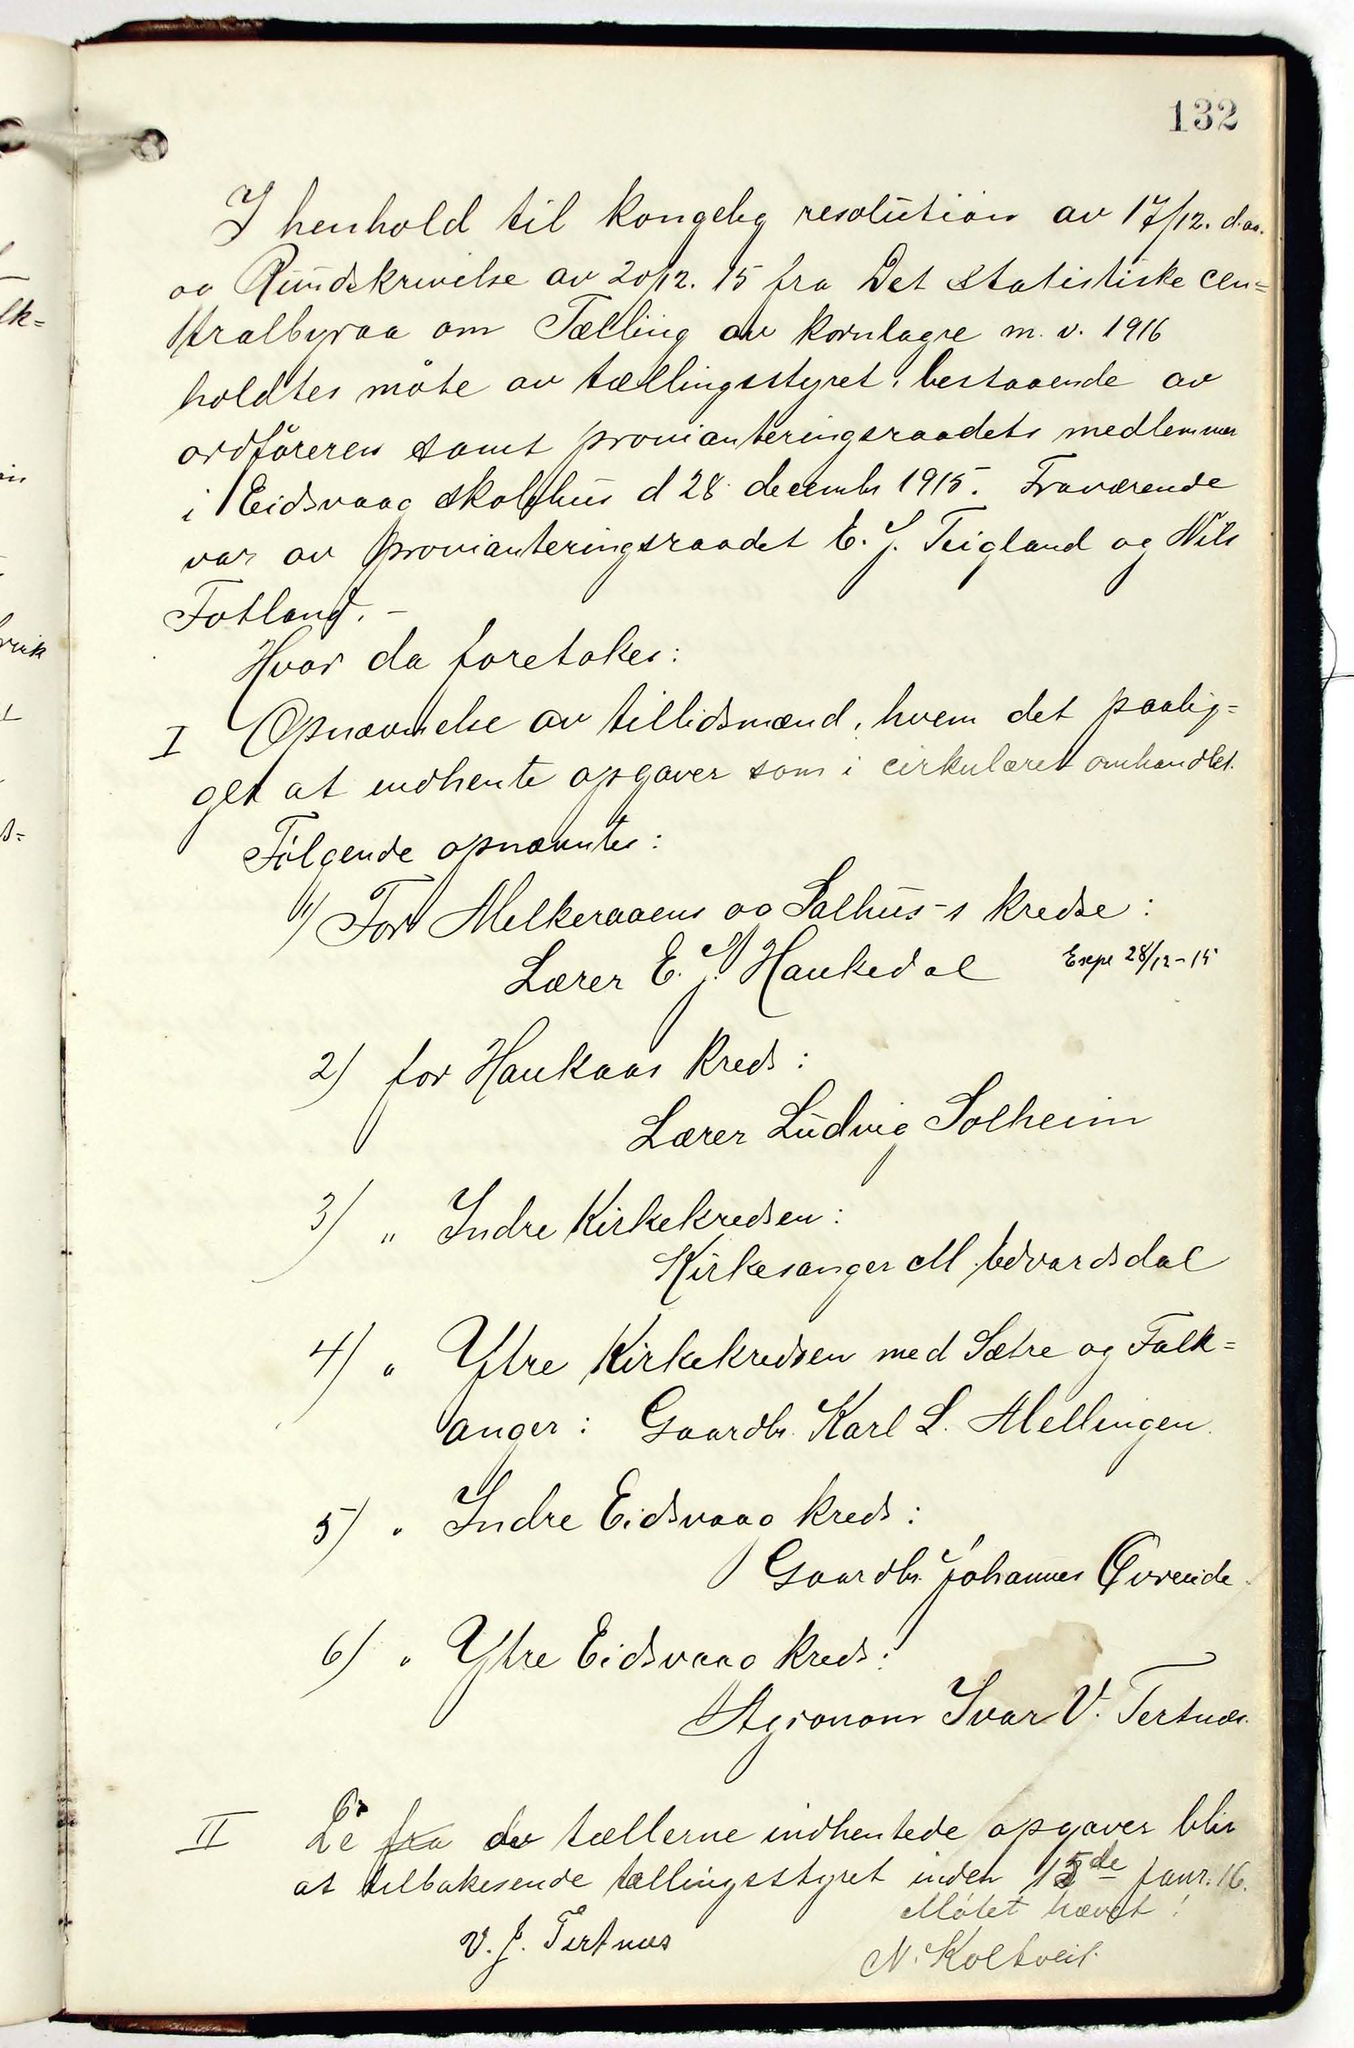 132
I henhold til kongelig resolution av 17/12. d.aa.
og Rundskrivelse av 20/12. 15 fra Det statistiske cen=
tralbyraa om Tælling av kornlagre m. v. 1916
holdtes møte av tællingsstyret, bestaaende av
ordføreren samt provianteringsraadets medlemmer
i Eidsvaag skolehus d 28 decembr 1915. Fraværende
var av provianteringsraadet E. J. Teigland og Nils
Totland. -
Hvor da foretokes:
I Opnævnelse av tillidsmænd, hvem det paalig=
ger at indhente opgaver som i cirkulæret omhandlet.
Følgende opnævntes:
1) For Melkeraaens og Salhus-s kredse:
Lærer E. J. Haukedal Expe 28/12-15
2) for Haukaas kreds:
Lærer Ludvig Solheim
3) " Indre Kirkekredsen:
Kirkesanger M. Edvardsdal
4) " Ytre Kirkekredsen med Sætre og Falk=
anger: Gaardbr. Karl L. Mellingen.
5) " Indre Eidsvaag kreds:
Gaardbr. Johannes Øvrende.
6) " Ytre Eidsvaag kreds:
Agronom Ivar V. Tertnæs.
II De fra av tællerne indhentede opgaver blir
at tilbakesende tællingsstyret inden 15de janr. 16.
Møtet hævet!
V. J. Tertnæs N. Koltveit.